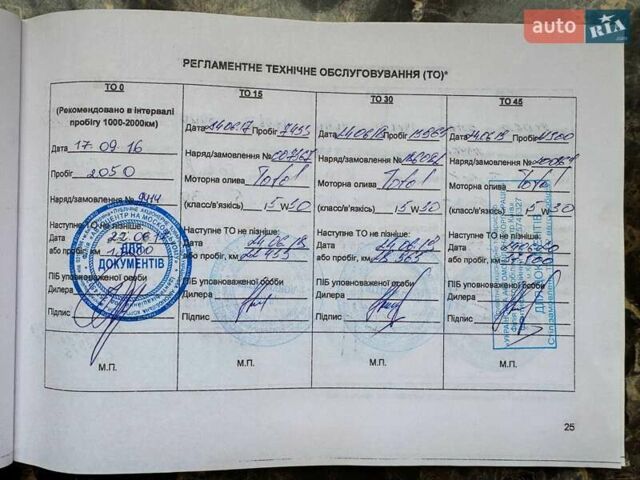 auto RIA .com
РЕГЛАМЕНТНЕ ТЕХНІЧНЕ ОБСЛУГОВУВАННЯ (ТО)*
ТО 0
(Рекомендовано в інтервалі
пробігу 1000-2000км)
Дата 17.09.16
Пробіг 2050
Наряд/замовлення №
Наступне ТО не пізніше:
Дата 22.06.
або пробіг, км
ПІБ уповноваженої особи
Дилера
Підпис
М.П.
ДЛЯ
ДОКУМЕНТІВ
ТО 15
Дата 24.06.17 Пробіг 7455
Наряд/замовлення №
Моторна олива Total
(класс/в'язкість) 5 W 30
Наступне ТО не пізніше:
Дата 24.06.18
або пробіг, км 22455
ПІБ уповноваженої особи
Дилера
Підпис
М.П.
ТО 30
Дата 24.06.18 Пробіг
Наряд/замовлення №
Моторна олива Total
(класс/в'язкість) 5 W 30
Наступне ТО не пізніше:
Дата 24.06.19
або пробіг, км 28565
ПІБ уповноваженої особи
Дилера
Підпис
М.П.
ТО 45
Дата 24.06.19 Пробіг
Наряд/замовлення №
Моторна олива Total
(класс/в'язкість) 5 W 30
Наступне ТО не пізніше:
Дата
або пробіг, км
ПІБ уповноваженої особи
Дилера
Підпис
М.П.
25